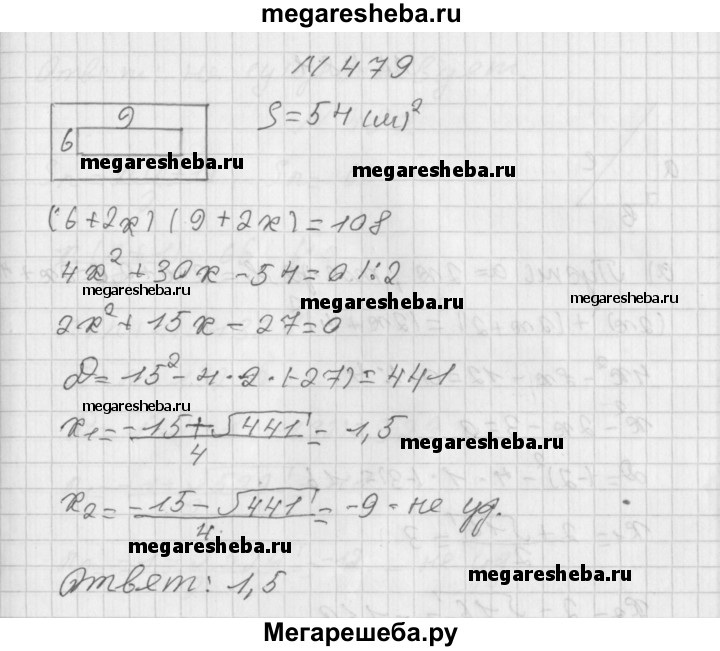 megaresheba.ru
N 479
9
S = 54 (м)²
6
megaresheba.ru
megaresheba.ru
(6 + 2x) (9 + 2x) = 108
4x² + 30x - 54 = 0 | : 2
megaresheba.ru
megaresheba.ru
megaresheba.ru
2x² + 15x - 27 = 0
D = 15² - 4 · 2 · (-27) = 441
megaresheba.ru
x₁ = (-15 + √441) / 4 = 1,5
megaresheba.ru
x₂ = (-15 - √441) / 4 = -9 - не уд.
megaresheba.ru
Ответ: 1,5
megaresheba.ru
Мегарешеба.ру